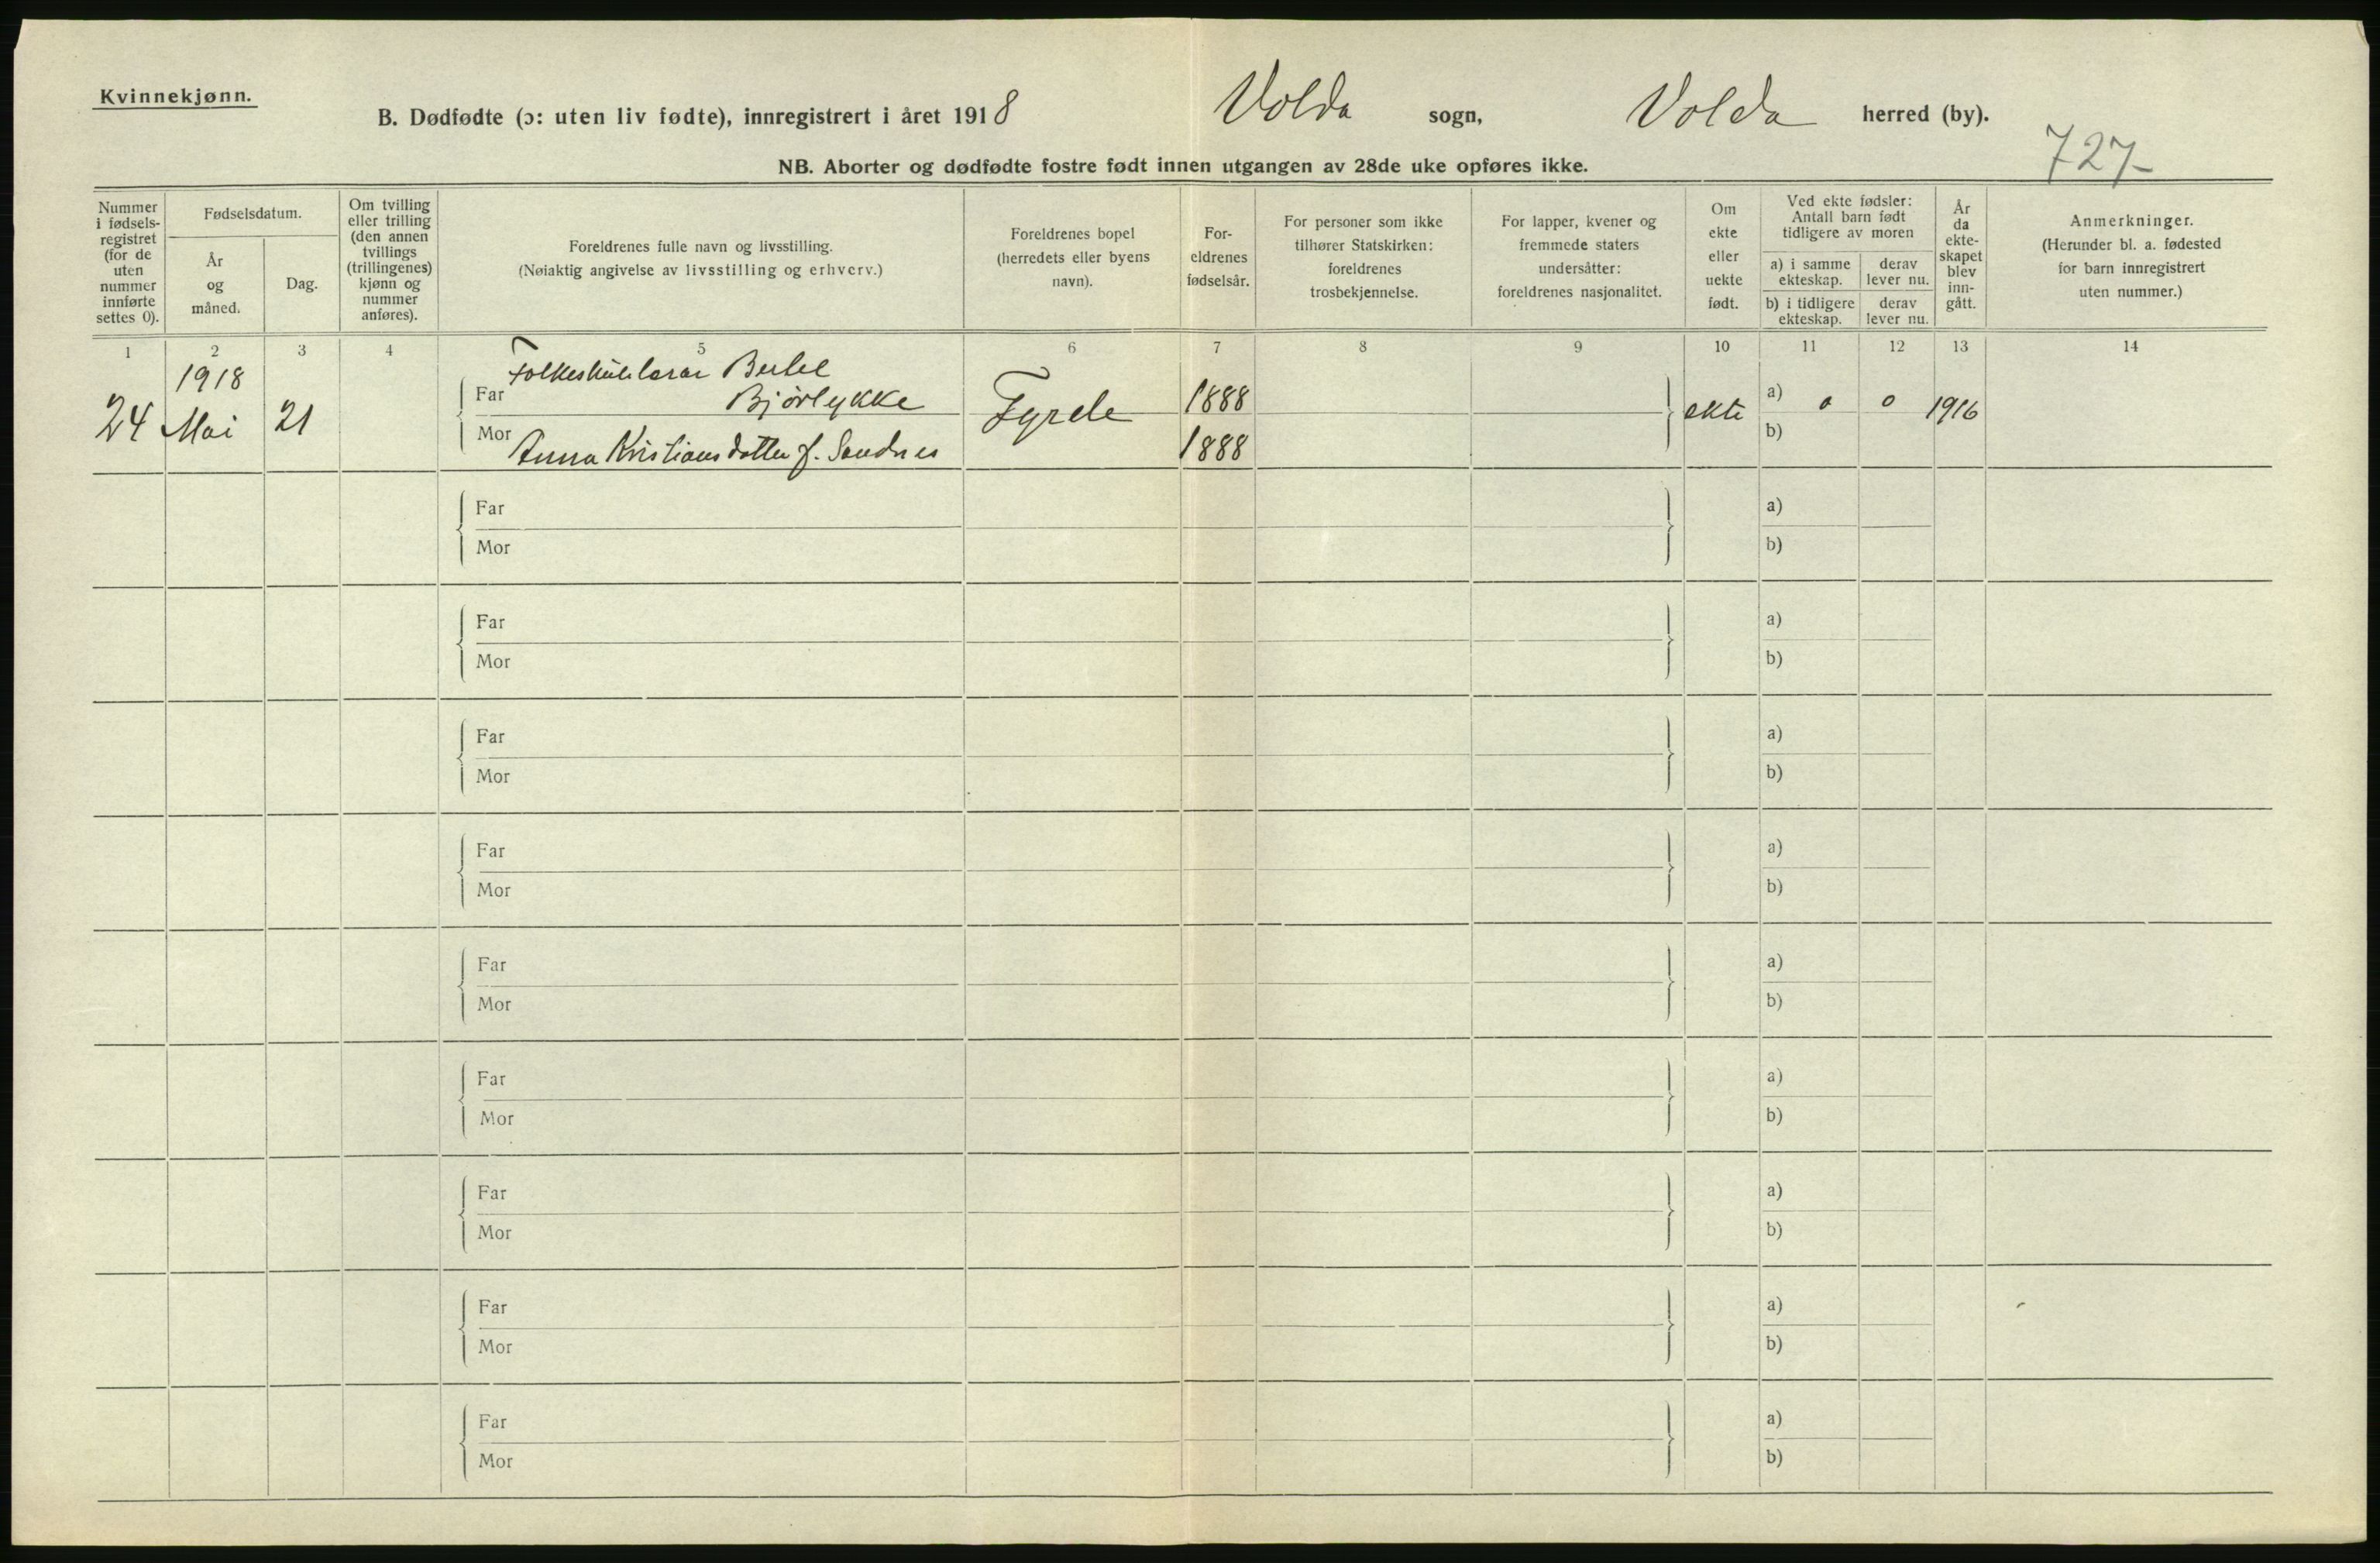 Kvinnekjønn.
B. Dødfødte (ɔ: uten liv fødte), innregistrert i året 1918 Volda sogn, Volda herred (by).
727-
NB. Aborter og dødfødte fostre født innen utgangen av 28de uke opføres ikke.
Nummer
i fødsels-
registret
(for de
uten
nummer
innførte
settes 0).
Fødselsdatum.
År
og
måned.
Dag.
Om tvilling
eller trilling
(den annen
tvillings
(trillingenes)
kjønn og
nummer
anføres).
Foreldrenes fulle navn og livsstilling.
(Nøiaktig angivelse av livsstilling og erhverv.)
Foreldrenes bopel
(herredets eller byens
navn).
For-
eldrenes
fødselsår.
For personer som ikke
tilhører Statskirken:
foreldrenes
trosbekjennelse.
For lapper, kvener og
fremmede staters
undersåtter:
foreldrenes nasjonalitet.
Om
ekte
eller
uekte
født.
Ved ekte fødsler:
Antall barn født
tidligere av moren
a) i samme
ekteskap.
derav
lever nu.
b) i tidligere
ekteskap.
derav
lever nu.
År
da
ekte-
skapet
blev
inn-
gått.
Anmerkninger.
(Herunder bl. a. fødested
for barn innregistrert
uten nummer.)
1 2 3 4 5 6 7 8 9 10 11 12 13 14
1918
24 Mai 21
Far Folkeskulelærar Bertel
Bjørlykke
Mor Anna Kristiansdatter f. Sandnes
1888
1888
ekte
a) 0 0 1916
b)
Far a)
Mor b)
Far a)
Mor b)
Far a)
Mor b)
Far a)
Mor b)
Far a)
Mor b)
Far a)
Mor b)
Far a)
Mor b)
Far a)
Mor b)
Far a)
Mor b)